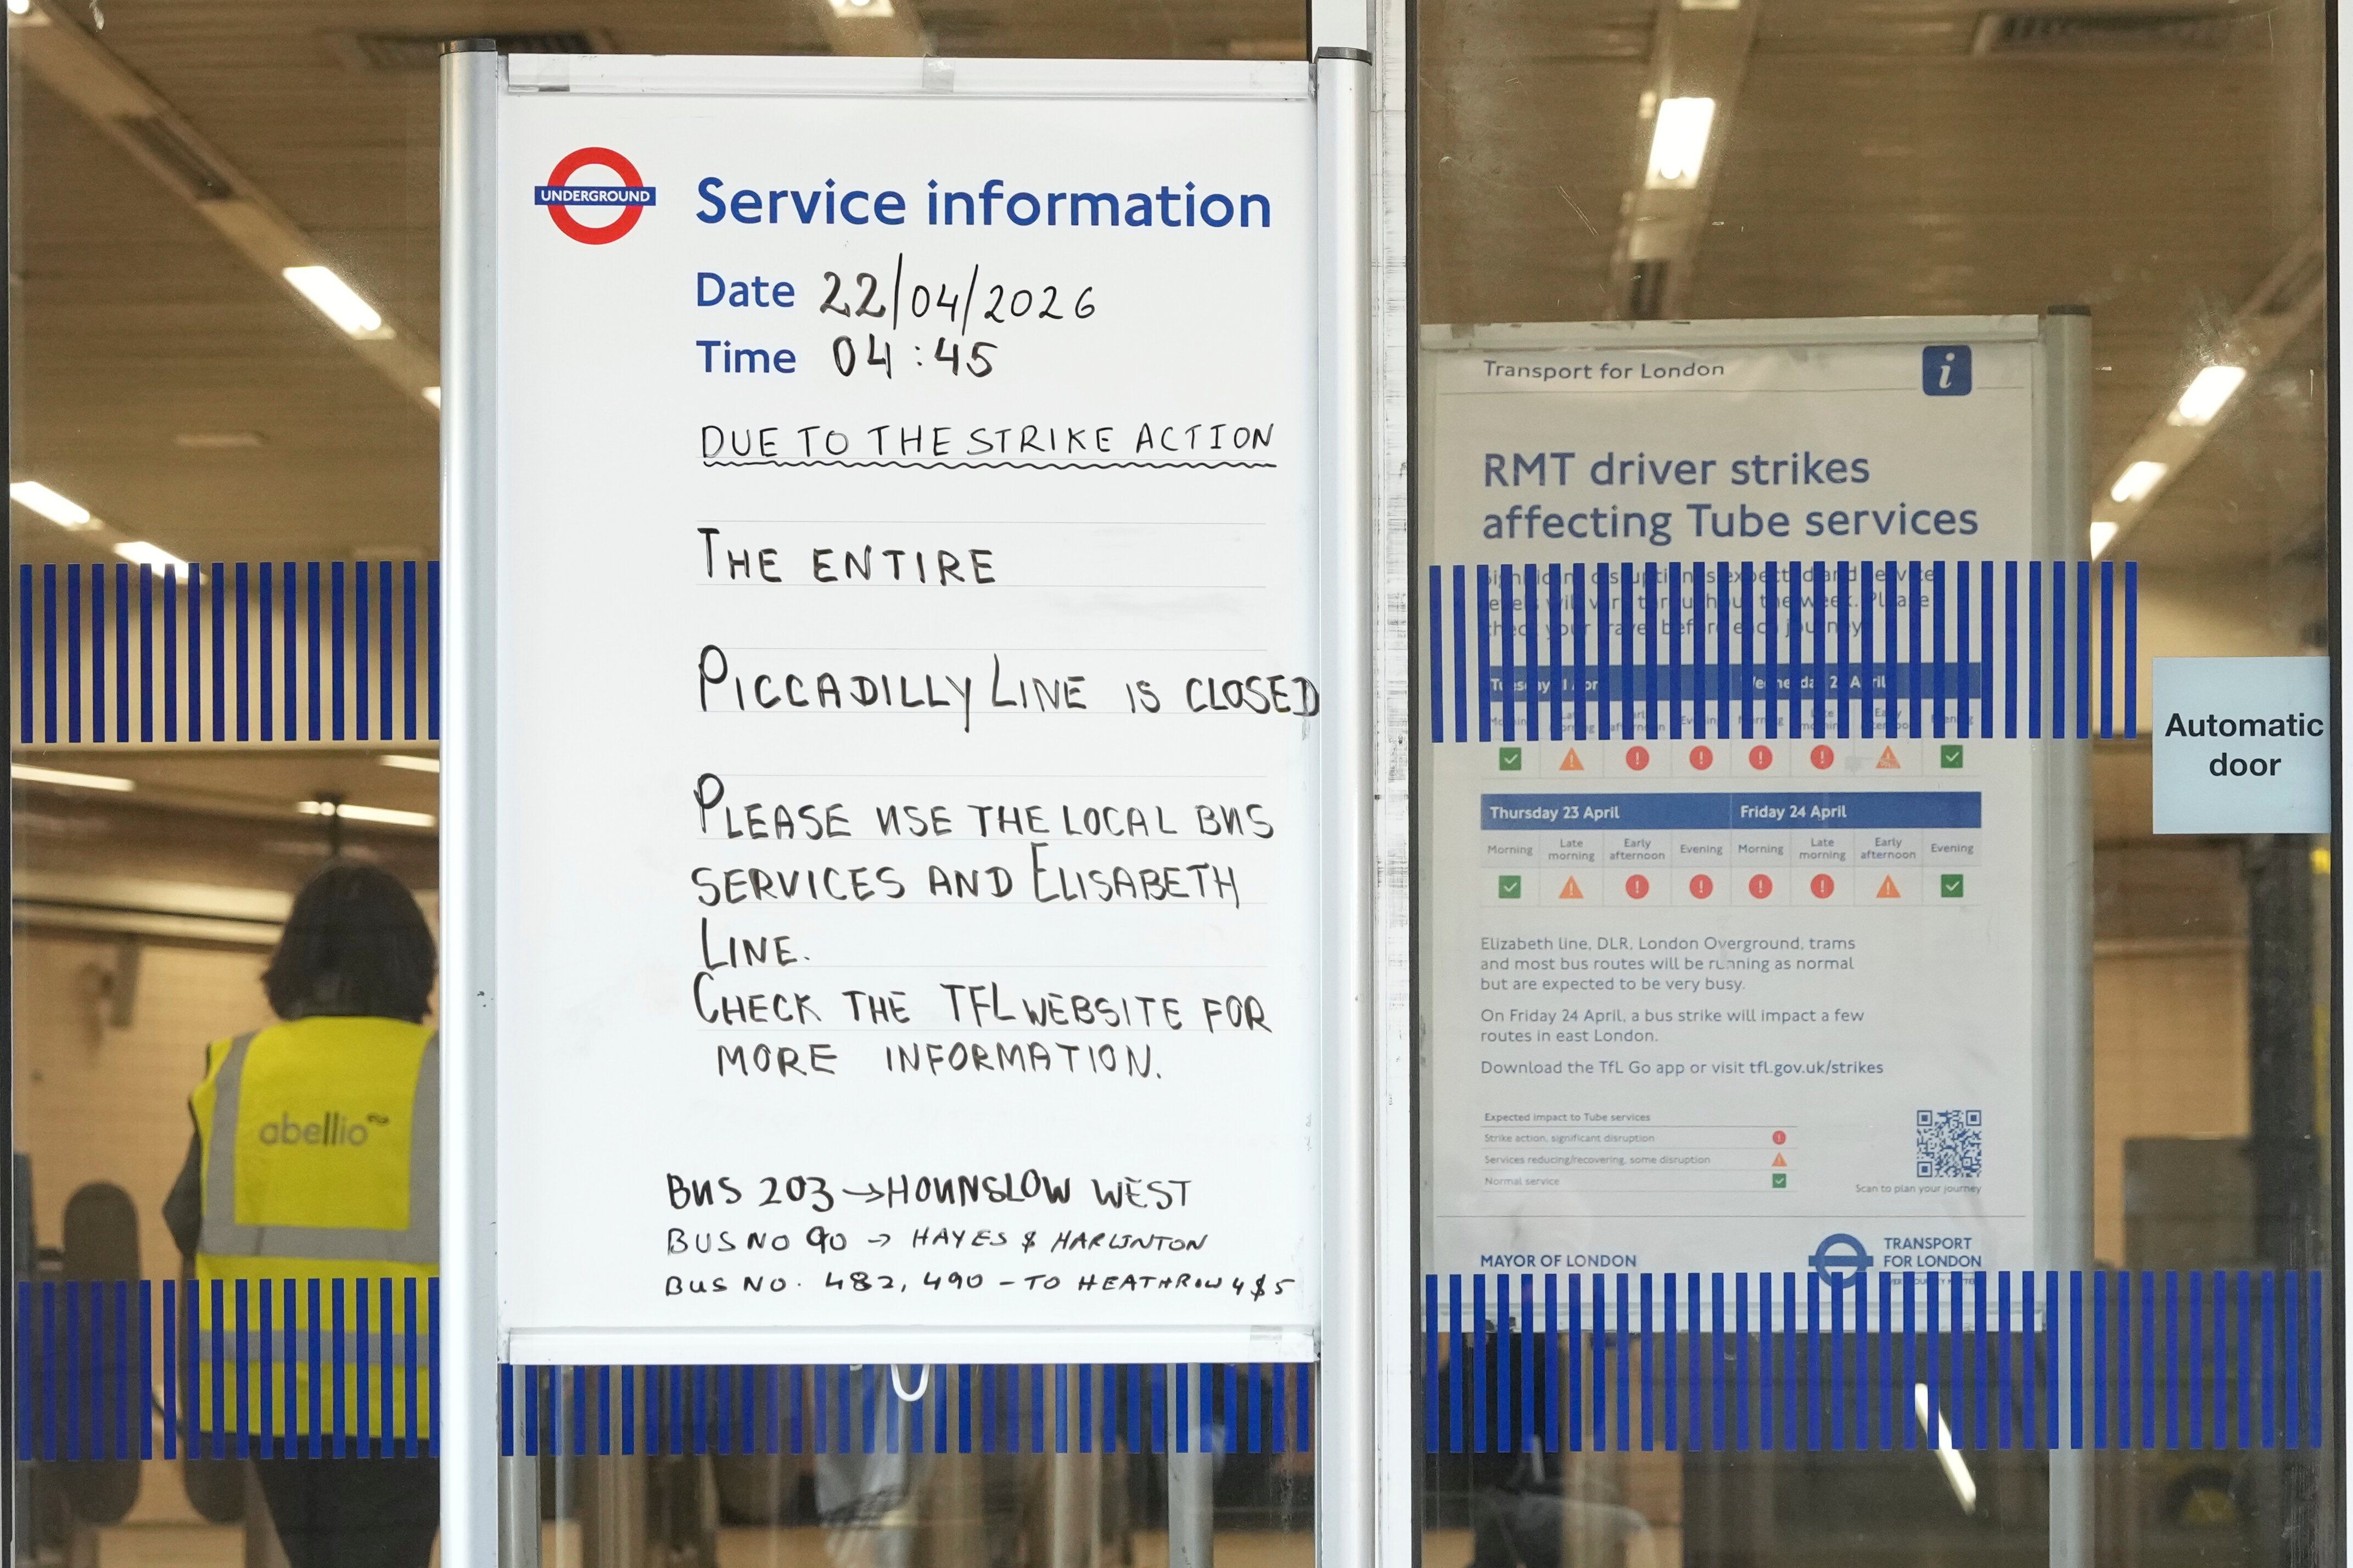 UNDERGROUND
Service information
Date 22/04/2026
Time 04:45
DUE TO THE STRIKE ACTION
THE ENTIRE
PICCADILLY LINE IS CLOSED
PLEASE USE THE LOCAL BUS
SERVICES AND ELISABETH
LINE.
CHECK THE TFL WEBSITE FOR
MORE INFORMATION.
BUS 203 → HOUNSLOW WEST
BUS NO 90 → HAYES & HARLINTON
BUS NO. 482, 490 - TO HEATHROW 4 & 5
abellio
Transport for London
i
RMT driver strikes
affecting Tube services
Significant disruption is expected and service
levels will vary throughout the week. Please
check your travel before each journey
Tuesday 21 April Wednesday 22 April
Morning Late morning Early afternoon Evening Morning Late morning Early afternoon Evening
Thursday 23 April Friday 24 April
Morning Late morning Early afternoon Evening Morning Late morning Early afternoon Evening
Elizabeth line, DLR, London Overground, trams
and most bus routes will be running as normal
but are expected to be very busy.
On Friday 24 April, a bus strike will impact a few
routes in east London.
Download the TfL Go app or visit tfl.gov.uk/strikes
Expected impact to Tube services
Strike action, significant disruption
Services reducing/recovering, some disruption
Normal service
Scan to plan your journey
MAYOR OF LONDON
TRANSPORT
FOR LONDON
Automatic
door